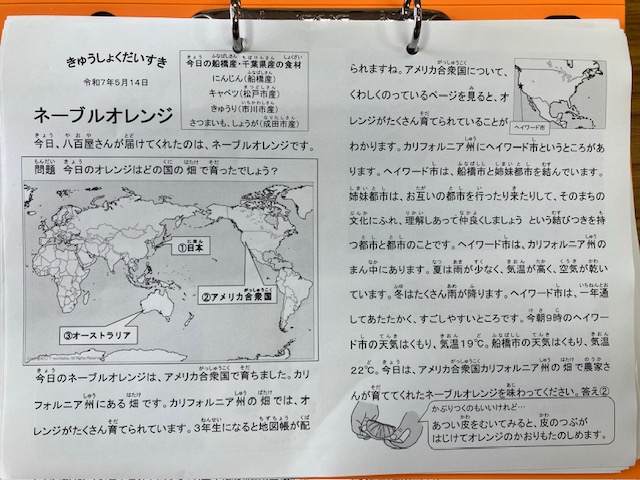 きゅうしょくだいすき
令和7年5月14日
ネーブルオレンジ
今日の船橋産・千葉県産の食材
にんじん(船橋産)
キャベツ(松戸市産)
きゅうり(市川市産)
さつまいも、しょうが(成田市産)
今日、八百屋さんが届けてくれたのは、ネーブルオレンジです。
問題 今日のオレンジはどの国の畑で育ったでしょう?
①日本
②アメリカ合衆国
③オーストラリア
今日のネーブルオレンジは、アメリカ合衆国で育ちました。カリ
フォルニア州にある畑です。カリフォルニア州の畑では、オ
レンジがたくさん育てられています。3年生になると地図帳が配
られますね。アメリカ合衆国について、
くわしくのっているページを見ると、オ
レンジがたくさん育てられていることが
わかります。カリフォルニア州にヘイワード市というところがあ
ヘイワード市
ります。ヘイワード市は、船橋市と姉妹都市を結んでいます。
姉妹都市は、お互いの都市を行ったり来たりして、そのまちの
文化にふれ、理解しあって仲良くしましょう という結びつきを持
つ都市と都市のことです。ヘイワード市は、カリフォルニア州の
まん中にあります。夏は雨が少なく、気温が高く、空気が乾い
ています。冬はたくさん雨が降ります。ヘイワード市は、一年通
してあたたかく、すごしやすいところです。今朝9時のヘイワー
ド市の天気はくもり、気温19℃。船橋市の天気はくもり、気温
22℃。今日は、アメリカ合衆国カリフォルニア州の畑で農家さ
んが育ててくれたネーブルオレンジを味わってください。答え②
かぶりつくのもいいけれど…
あつい皮をむいてみると、皮のつぶが
はじけてオレンジのかおりもたのしめます。